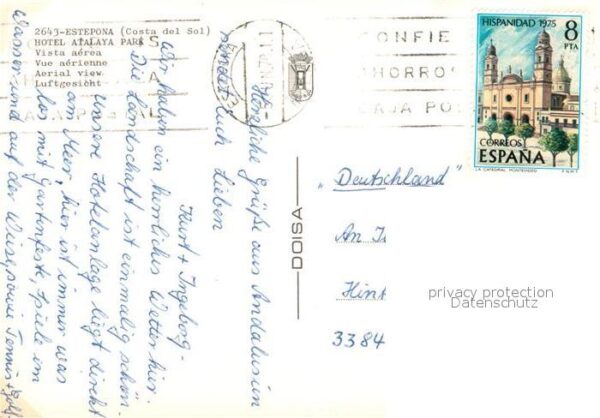 2643-ESTEPONA (Costa del Sol)
HOTEL ATALAYA PARK
Vista aérea
Vue aérienne
Aerial view
Luftgesicht
CONFIE
AHORROS
CAJA POS
HISPANIDAD 1975
8
PTA
CORREOS
ESPAÑA
LA CATEDRAL, MONTEVIDEO
F.N.M.T.
DOISA
„Deutschland"
An
3384
privacy protection
Datenschutz
Herzliche Grüße aus Andalusien
sendet Euch Lieben
Kurt + Ingeborg.
Wir haben ein herrliches Wetter hier.
Die Landschaft ist einmalig schön.
unsere Hotelanlage liegt direkt
am Meer, hier ist immer was
los mit Gartenfeste, Spiele im
Wasser und auf der Wiese, sowie Tennis + Golf